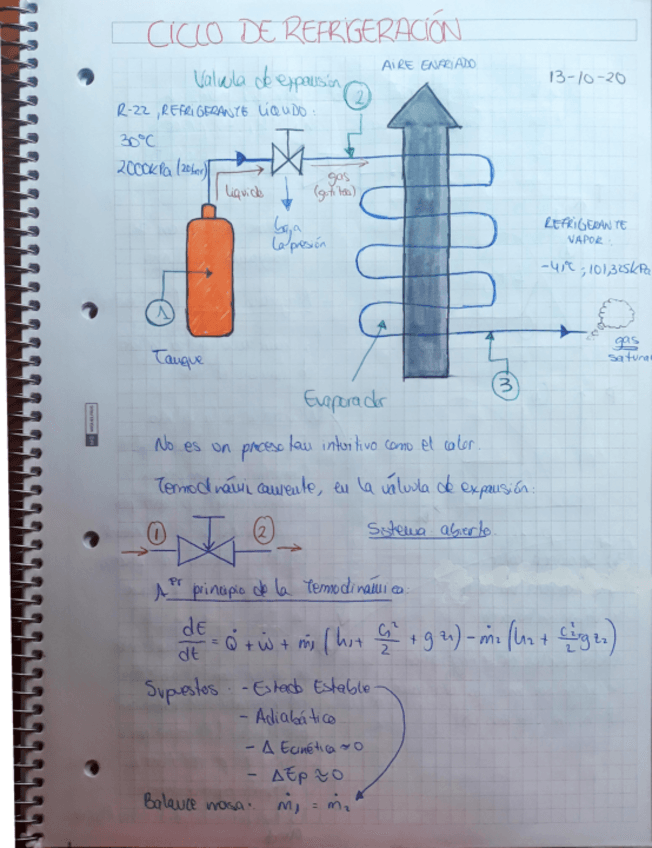 CICLO DE REFRIGERACIÓN
AIRE ENFRIADO
13-10-20
Valvula de expansión
2
R-22, REFRIGERANTE LÍQUIDO:
30°C
2000kPa (20bar)
líquido
gas
(gotitas)
baja
la presión
REFRIGERANTE
VAPOR:
-41°C; 101,325kPa
1
gas
satura
Tanque
3
Evaporador
No es un proceso tan intuitivo como el calor.
Termodinámicamente, en la válvula de expansión:
1 2
Sistema abierto.
1er principio de la Termodinámica:
dE/dt = Q̇ + ẇ + ṁ₁ (h₁ + C₁²/2 + g z₁) - ṁ₂ (h₂ + C₂²/2 g z₂)
Supuestos: - Estado Estable
- Adiabático
- Δ Ecinética ≈ 0
- ΔEp ≈ 0
Balance masa: ṁ₁ = ṁ₂